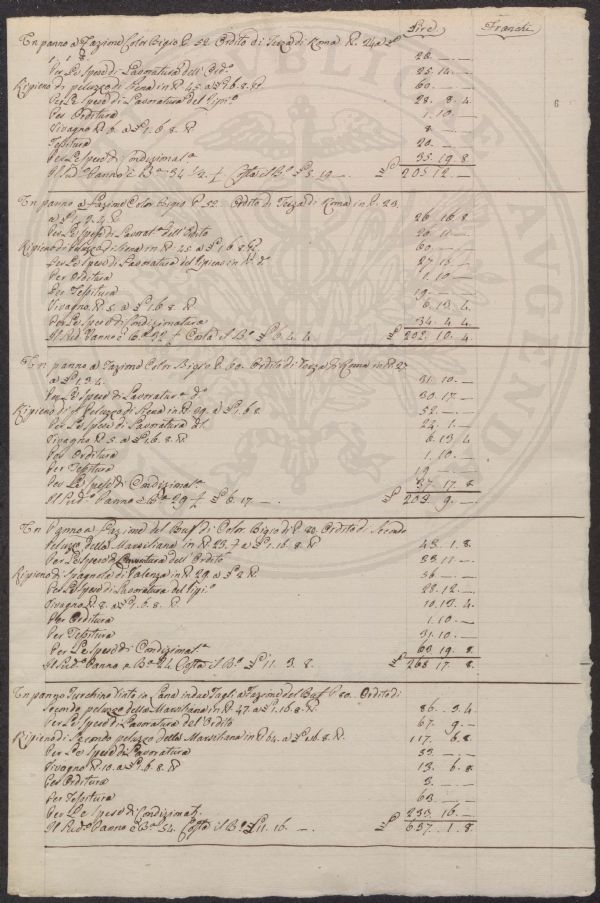 Lire Franchi
Un panno a Fazione Color Bigio P. 52. Ordito di Terza di Roma lb. 24 a £
26. — —
Per Le Spese di Lavoratura dell' Ord.º 25. 14. —
Ripieno di peluzzo di Siena in lb. 45. a £ 1. 6. 8. lb. 60. — —
Per Le Spese di Lavoratura del Ripi.º 28. 8. 4
Per Orditura 1. 10. —
Vivagno lb. 6. a £ 1. 6. 8. lb. 8. — —
Tesitura 20. — —
Per Le Spese di Condizimat.ª 35. 19. 8
Il Sud.º Panno è B.ª 34 1/2 Costa il B.º £ 5. 19 — £ 205. 12. —
Un panno a Fazione Color Bigio P. 52. Ordito di Terza di Roma in lb. 23.
a £ 1. 3. 4. lb 26. 16. 8.
Per Le Spese di Lavorat.ª dell' Ordito 20. 11. —
Ripieno di Peluzzo di Siena in lb. 45. a £ 1. 6. 8. lb. 60. — —
Per Le Spese di Lavoratura del Ripieno in lb. d.º 27. 15. —
Per Orditura 1. 10. —
Per Tessitura 19. — —
Vivagno lb. 5. a £ 1. 6. 8. lb. 6. 13. 4.
Per Le Spese di Condizimatura 34. 4. 4.
Il Sud.º Panno è B.ª 32. Costa il B.º £ 6. 4. 4 £ 202. 10. 4.
Un panno a Fazione Color Bigio P. 60. Ordito di Terza di Roma in lb. 27
a £ 1. 3. 4. 31. 10. —
Per Le Spese di Lavoratur.ª d.º 30. 17. —
Ripieno di Peluzzo di Siena in lb. 39. a £ 1. 6. 8. 52. — —
Per Le Spese di Lavoratura d.º 24. 1. —
Vivagno lb. 5. a £ 1. 6. 8. lb 6. 13. 4
Per Orditura 1. 10. —
Per Tesitura 19. — —
Per Le Spese di Condizimat.ª 37. 17. 8
Il Sud.º Panno è B.ª 29 £ 6. 17 — £ 203. 9. —
Un Panno a Fazione del Buf di Color Bigio di P. 80. Ordito di Secondo
Peluzzo della Marsiliana in lb. 23. a £ 1. 16. 8. lb 43. 1. 8.
Per Le Spese di Lavoratura dell' Ordito 33. 11. —
Ripieno di Spagnola di Valenza in lb. 29. a £ 2. lb. 56. — —
Per Le Spese di Lavoratura del Ripi.º 28. 12. —
Vivagno lb. 8. a £ 1. 6. 8. lb. 10. 13. 4.
Per Orditura 1. 10. —
Per Tesitura 31. 10. —
Per Le Spese di Condizimat.ª 63. 19. 8.
Il Sud.º Panno è B.ª 24 Costa il B.º £ 11. 3. 8. £ 268. 17. 8.
Un panno Turchino tinto in Lana in due Tagli a Fazione del Buf P. 80. Ordito di
Secondo peluzzo della Marsiliana in lb. 47. a £ 1. 16. 8. lb. 86. 3. 4
Per Le Spese di Lavoratura del Ordito 67. 9. —
Ripieno di Secondo peluzzo della Marsiliana in lb. 64. a £ 1. 16. 8. lb. 117. 6. 8.
Per Le Spese di Lavoratura 53. — —
Vivagno lb. 10. a £ 1. 6. 8. lb 13. 6. 8.
Per Orditura 3. — —
Per Tesitura 63. — —
Per Le Spese di Condizimat. 233. 16. —
Il Sud.º Panno è B.ª 54. Costa il B.º £ 11. 16. — £ 637. 1. 8.